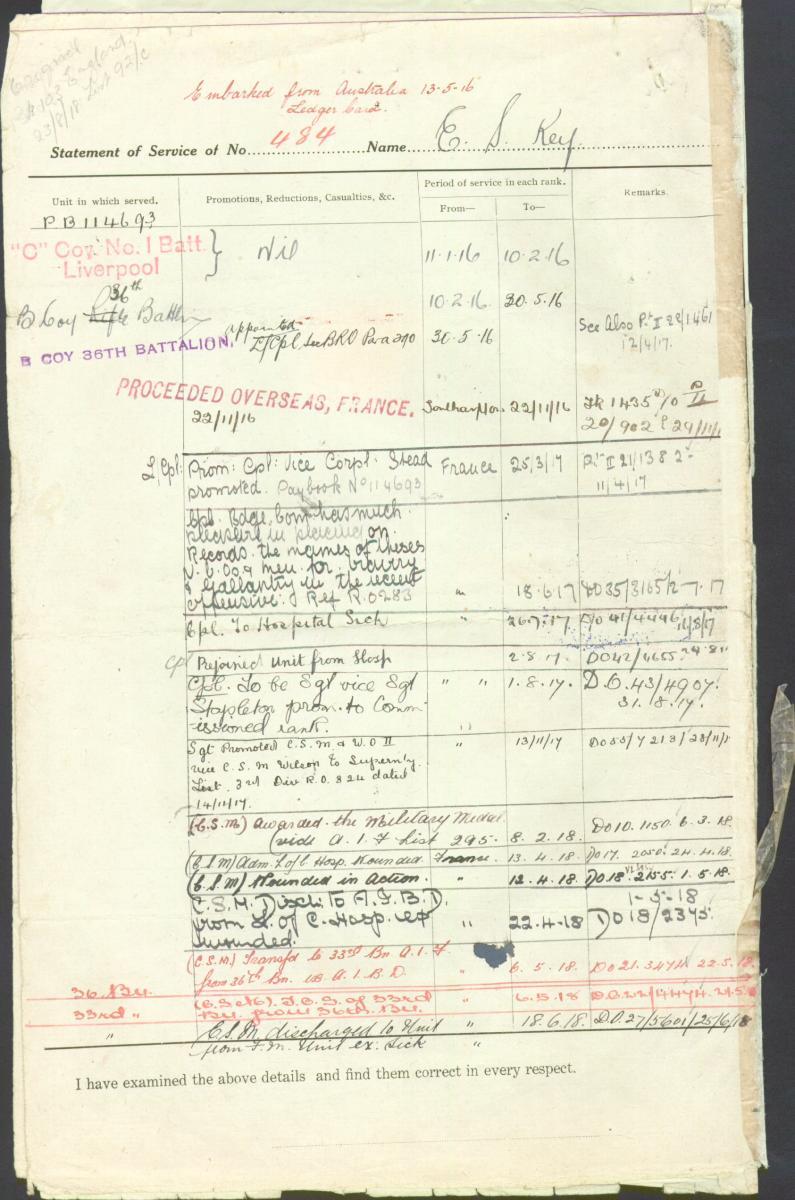 23/8/18 List 92/c
Embarked from Australia 13-5-16
Ledger Card.
Statement of Service of No. 484 Name E. S. Key.
Unit in which served. Promotions, Reductions, Casualties, &c. Period of service in each rank. Remarks.
From— To—
PB114693
"C" Coy. No. 1 Batt. } Nil 11.1.16 10.2.16
Liverpool
36th 10.2.16 30.5.16
B Coy Battn appointed See Also Pt II 22/1461
L/Cpl, See BRO Para 290 30.5.16 12/4/17.
B COY 36TH BATTALION.
PROCEEDED OVERSEAS, FRANCE. Southampton 22/11/16 1435
22/11/16 20/902
L/Cpl: Prom: Cpl: Vice Corpl: Stead France 25/3/17 Pt II 21/1382
promoted. Paybook No 114693 11/4/17
Cpl. has much
pleasure in placing on
Records the names of theses
N.C.Os & men for bravery
& gallantry in the recent
offensive. Ref R.O 283 " 18.6.17 DO35/3165/2-7-17
Cpl. To Hospital Sick " 26.7.17. DO 41/4446 11/8/17
Cpl Rejoined Unit from Hosp 2.8.17. DO42/4655
Cpl. To be Sgt vice Sgt " " 1.8.17. D.O.43/4907.
Stapleton prom. to Comm- 31.8.17.
issioned rank.
Sgt Promoted C.S.M. & W.O II " 13/11/17 DO55/7213/28/11/17
vice C.S.M Wilson to Supernty.
List. 3rd Div R.O. 824 dated
14/11/17.
(C.S.M.) Awarded the Military Medal
(vide A.I.F List 295. 8.2.18. DO10.1150.6.3.18.
(C.S.M) Adm. L of C Hosp. Wounded France. 13.4.18. DO17.2050.24.4.18.
(C.S.M) Wounded in Action. " 12.4.18. DO18.2155.1.5.18
C.S.M. Disch. To A.I.B.D. 1-5-18
from L. of C. Hosp. ex 22.4.18 DO18/2375.
wounded.
(C.S.M.) Transf'd to 33rd Bn A.I.F
from 36th Bn. via A.I.B.D. " 6.5.18. DO21.3474.22.5.18.
36 Bn. (C.S.M). T.O.S. of 33rd 6.5.18 D.O.22/4474.
33rd " Bn. from 36th Bn.
" C.S.M. discharged to Unit 18.6.18. D.O.27/5601/25/6/18
from Unit ex. Sick "
I have examined the above details and find them correct in every respect.